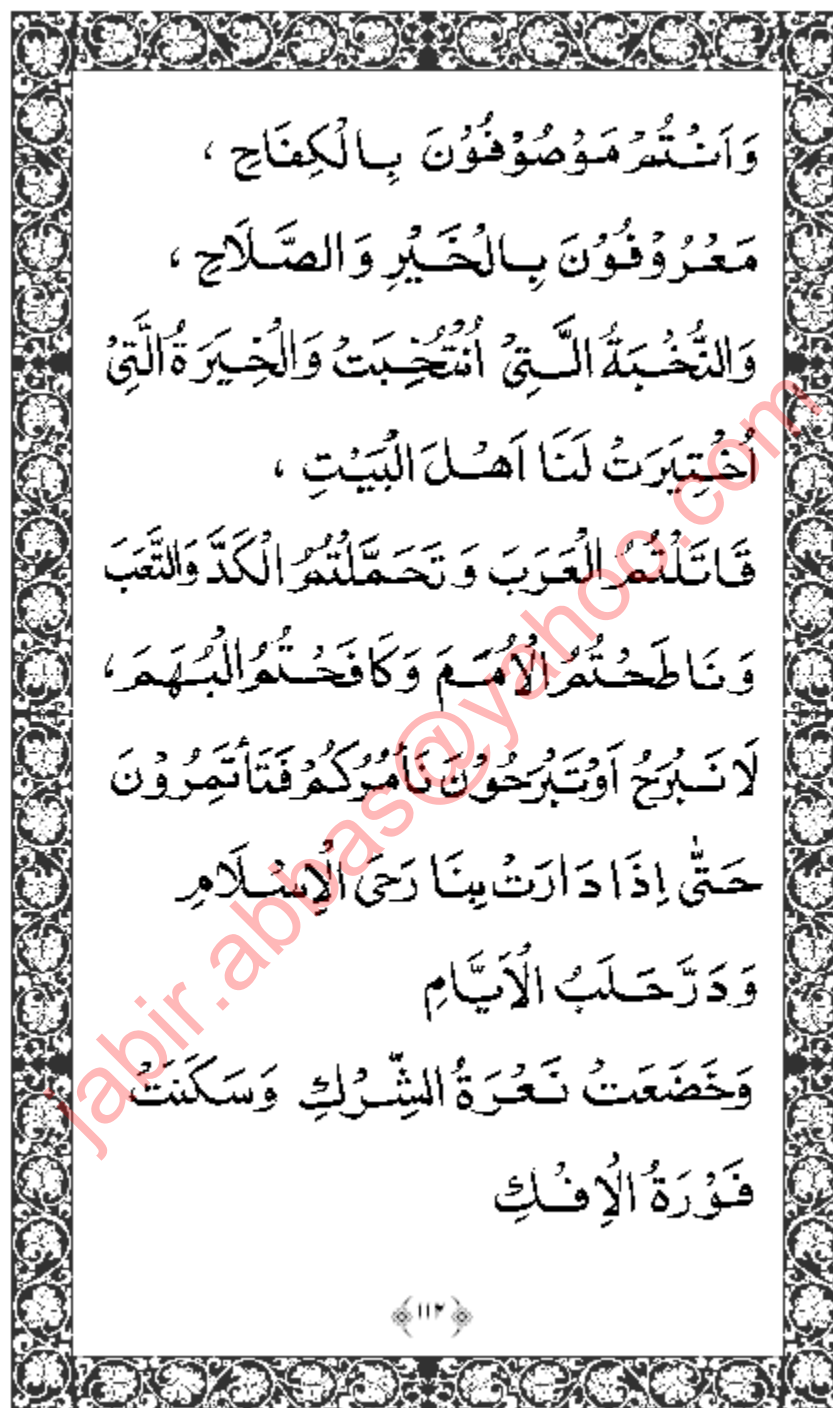 وَاَنْتُمْ مَوْصُوْفُوْنَ بِالْكِفَاحِ ،
مَعْرُوْفُوْنَ بِالْخَيْرِ وَالصَّلَاحِ ،
وَالنُّخْبَةُ الَّتِيْ اُنْتُخِبَتْ وَالْخِيَرَةُ الَّتِيْ
اُخْتِيَرَتْ لَنَا اَهْلَ الْبَيْتِ ،
قَاتَلْتُمُ الْعَرَبَ وَ تَحَمَّلْتُمُ الْكَدَّ وَالتَّعَبَ
وَ نَاطَحْتُمُ الْاُمَمَ وَ كَافَحْتُمُ الْبُهَمَ ،
لَا نَبْرَحُ اَوْتَبْرَحُوْنَ نَأْمُرُكُمْ فَتَأْتَمِرُوْنَ
حَتّٰى اِذَا دَارَتْ بِنَا رَحَى الْاِسْلَامِ
وَ دَرَّ حَلَبُ الْاَيَّامِ
وَخَضَعَتْ نَعْرَةُ الشِّرْكِ وَسَكَنَتْ
فَوْرَةُ الْاِفْكِ
﴿١١٢﴾
jabir.abbas@yahoo.com